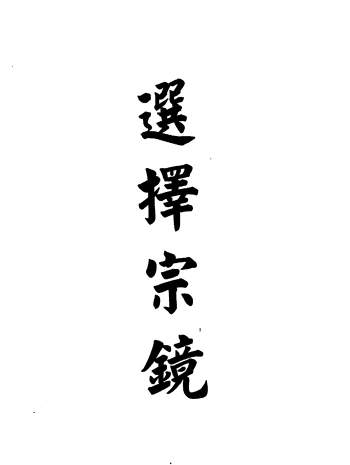 選擇宗鏡